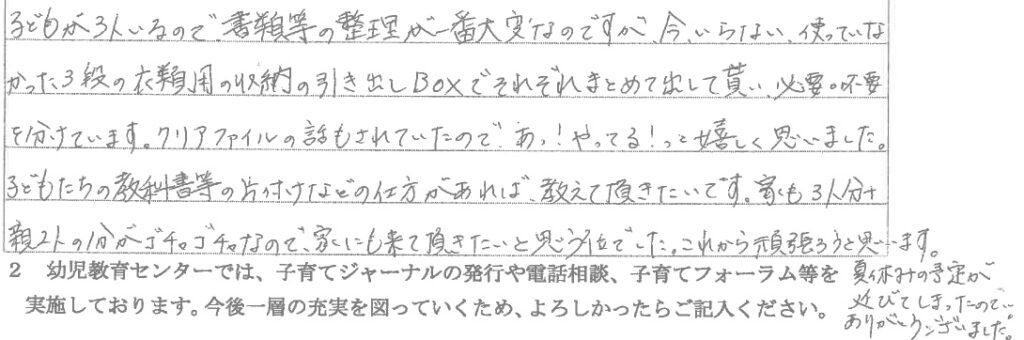 子どもが3人いるので、書類等の整理が一番大変なのですが、今、いらない、使っていな
かった3段の衣類用の収納の引き出しBOXでそれぞれまとめて出して貰い、必要・不要
を分けています。クリアファイルの話もされていたので、あっ!やってる!っと嬉しく思いました。
子どもたちの教科書等の片付けなどの仕方があれば、教えて頂きたいです。家も3人分+
親2人の分がゴチャゴチャなので、家にも来て頂きたいと思う位でした。これから頑張ろうと思います。
2 幼児教育センターでは、子育てジャーナルの発行や電話相談、子育てフォーラム等を
実施しております。今後一層の充実を図っていくため、よろしかったらご記入ください。
夏休みの予定が
延びてしまったので。
ありがとうございました。